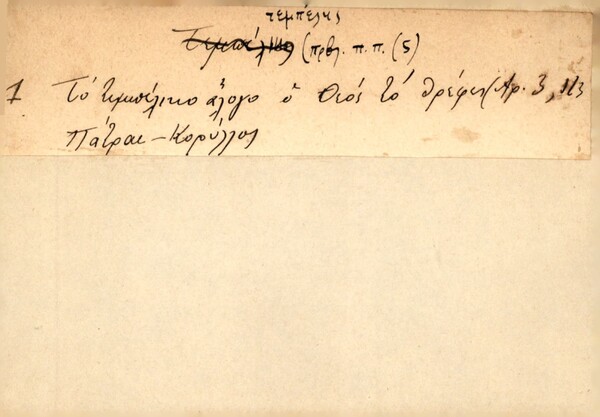 τεμπέλης
Τεμπέλικο (πρβλ. π.π. (5)
1 Τό τεμπέλικο άλογο ὁ Θεός τό θρέφει (Αρ. 3, 113
Πάτραι – Κορύλλος